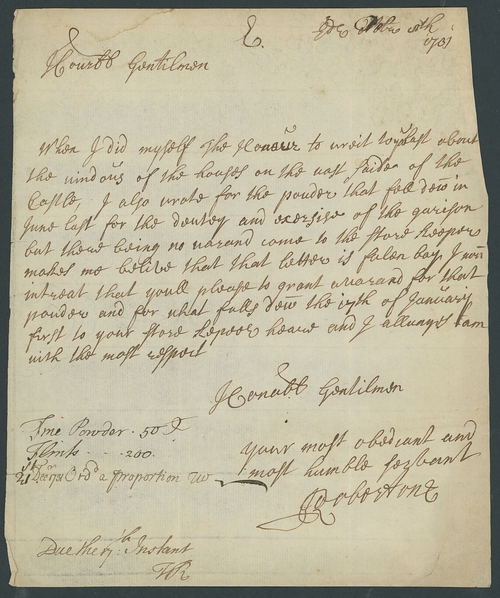 1731
Hourbl Gentilmen
When I did myself The Honour to wreit to you last about
the vindous of the houses on the vast saide of the
Castle, I also wrote for the pouder that fell dew in
June last for the deutey and exersise of the garison
but there being no warand come to the store keeper
makes me belive that that letter is falen bay, I now
intreat that youll please to grant a warand for that
pouder and for what falls dew the 17th of January
first to your store kepeer heare and I allways am
with the most respect
Honorabl Gentilmen
your most obediant and
most humble servant
Fine Powder . 50
Flints . . . 200
a proportion
Due the 17th Instant